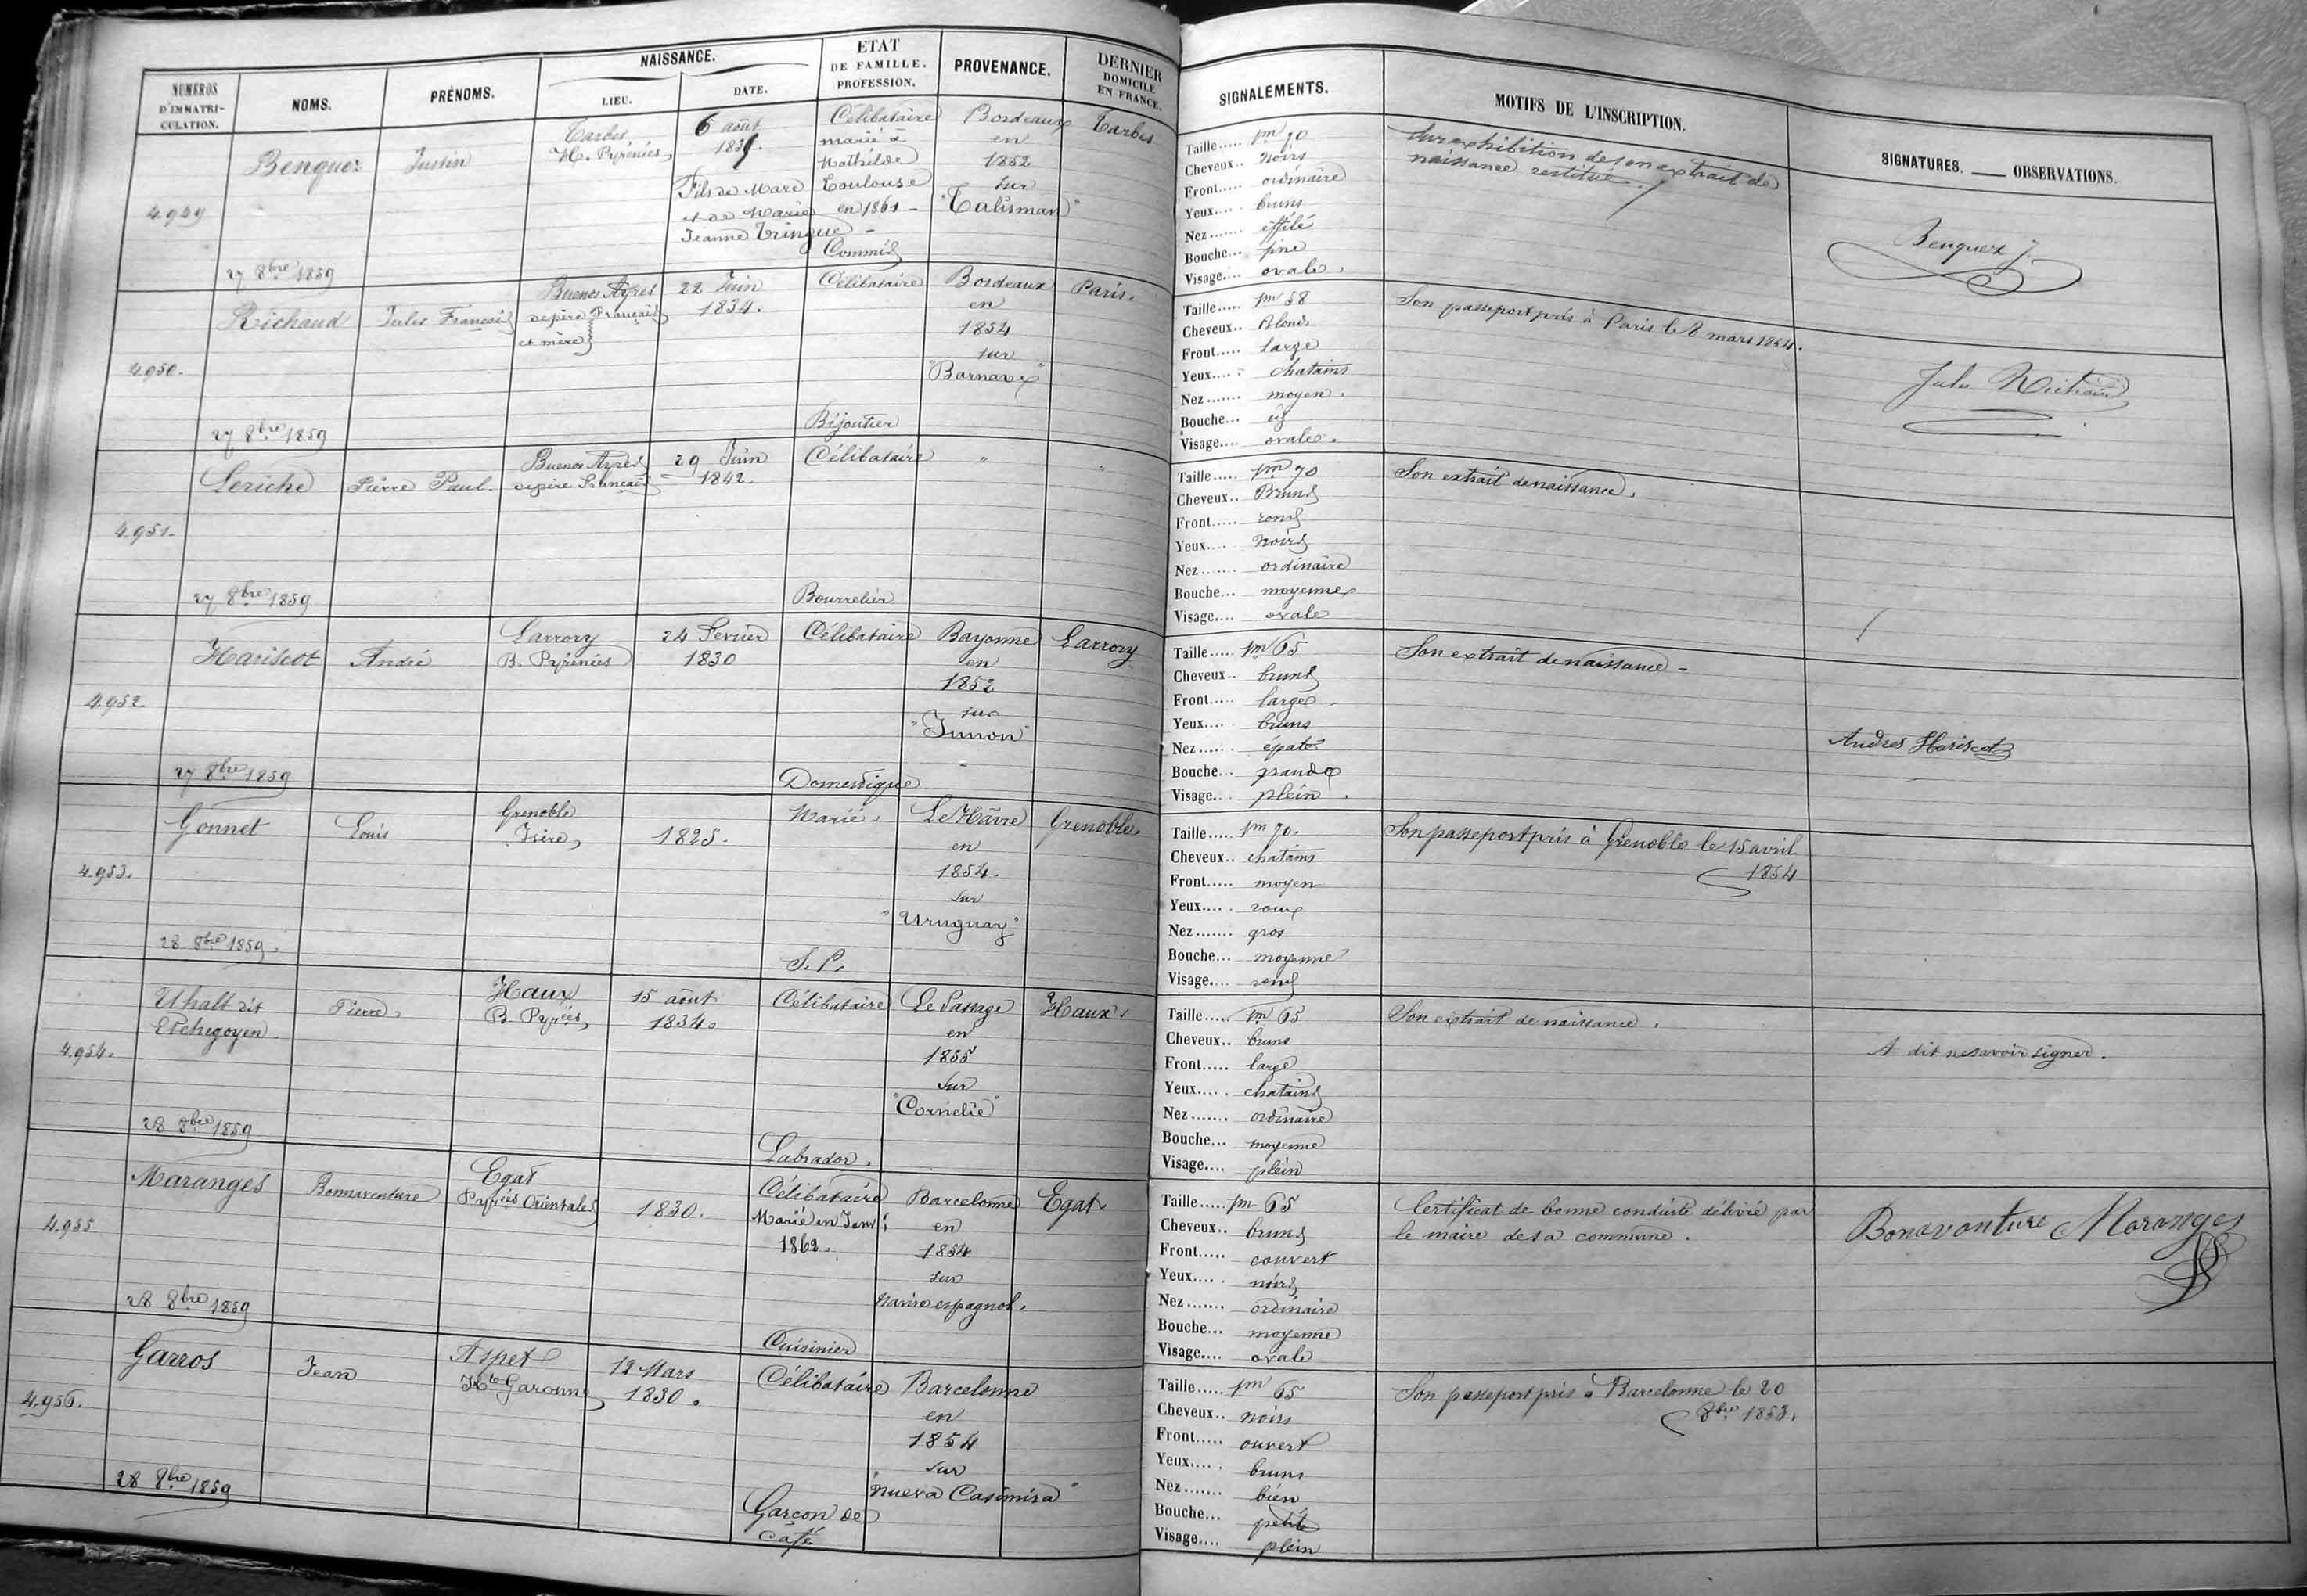 NUMÉROS
D'IMMATRI-
CULATION.
NOMS.
PRÉNOMS.
NAISSANCE.
LIEU.
DATE.
ETAT
DE FAMILLE.
PROFESSION.
PROVENANCE.
DERNIER
DOMICILE
EN FRANCE.
SIGNALEMENTS.
MOTIFS DE L'INSCRIPTION.
SIGNATURES. — OBSERVATIONS.
4.949
27 8bre 1859
Benquez
Justin
Tarbes
H. Pyrénées
6 août
1839.
Fils de Marc
et de Marie
Jeanne Tringue -
Célibataire
marié à
Mathilde
Toulouse
en 1861 -
Commis
Bordeaux
en
1852
sur
"Talisman"
Tarbes
Taille..... 1m 70
Cheveux.. noirs
Front..... ordinaire
Yeux..... bruns
Nez....... effilé
Bouche... fine
Visage.... ovale.
Sur exhibition de son extrait de
naissance restitué.
Benquez J.
4.950.
27 8bre 1859
Richaud
Jules François
Buenos Ayres
de père Français
et mère
22 Juin
1834.
Célibataire
Béjoutier
Bordeaux
en
1854
sur
"Barnave"
Paris.
Taille..... 1m 58
Cheveux.. Blonds
Front..... large
Yeux..... chatains
Nez....... moyen.
Bouche... id
Visage.... ovale.
Son passeport pris à Paris le 8 mars 1854.
Jules Richaud
4.951.
27 8bre 1859
Leriche
Pierre Paul.
Buenos Ayres
de père Français
29 Juin
1842.
Célibataire
Bourrelier
"
"
Taille..... 1m 70
Cheveux.. Bruns
Front..... rond
Yeux.... noirs
Nez....... ordinaire
Bouche... moyenne
Visage.... ovale
Son extrait de naissance.
4.952.
27 8bre 1859
Hariscot
André
Larrory
B. Pyrénées
24 Fevrier
1830
Célibataire
Domestique
Bayonne
en
1852
sur
"Junon"
Larrory
Taille..... 1m 65
Cheveux.. bruns
Front..... large
Yeux..... bruns
Nez....... épaté
Bouche... grande
Visage.... plein.
Son extrait de naissance -
Andres Hariscot
4.953.
28 8bre 1859.
Gonnet
Louis
Grenoble
Isère,
1825.
Marié.
S. P.
Le Hâvre
en
1854.
sur
"Uruguay"
Grenoble.
Taille..... 1m 70.
Cheveux.. chatains
Front..... moyen
Yeux..... roux
Nez....... gros
Bouche... moyenne
Visage.... rond
Son passeport pris à Grenoble le 15 avril
1854
4.954.
28 8bre 1859
Uhalt dit
Etchegoyen.
Pierre.
Haux
B. Pyrées,
15 août
1834.
Célibataire
Labrador.
Le Passage
en
1855
sur
"Cornelie"
Haux.
Taille..... 1m 65
Cheveux.. bruns
Front..... large
Yeux..... chatains
Nez....... ordinaire
Bouche... moyenne
Visage.... plein
Son extrait de naissance.
A dit ne savoir signer.
4.955
28 8bre 1859
Maranges
Bonnaventure
Egat
Pyrées Orientales
1830.
Célibataire
Marié en Janv:
1862.
Cuisinier
Barcelonne
en
1854
sur
navire espagnol.
Egat
Taille..... 1m 65
Cheveux.. bruns
Front..... couvert
Yeux..... noirs
Nez....... ordinaire
Bouche... moyenne
Visage.... ovale
Certificat de bonne conduite délivré par
le maire de sa commune.
Bonavonture Maranges
4.956.
28 8bre 1859
Garros
Jean
Aspet
Hte Garonne
12 Mars
1830.
Célibataire
Garçon de
café
Barcelonne
en
1854
sur
"nueva Casimira"
Taille..... 1m 65
Cheveux.. noirs
Front..... ouvert
Yeux..... bruns
Nez....... bien
Bouche... petite
Visage.... plein
Son passeport pris à Barcelonne le 20
8bre 1853.